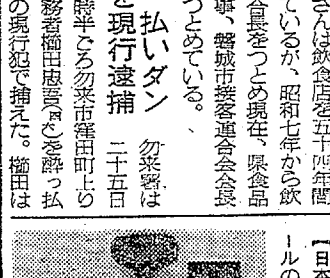 さんは飲食店を五十四年間
ているが、昭和七年から飲
合長をつとめ現在、県食品
事、磐城市接客連合会会長
つとめている。
払いダン
を現行逮捕
勿来署は
二十五日
時半ごろ勿来市窪田町上り
務者櫛田忠吾を酔っ払
の現行犯で捕えた。櫛田は
【日本
ールの